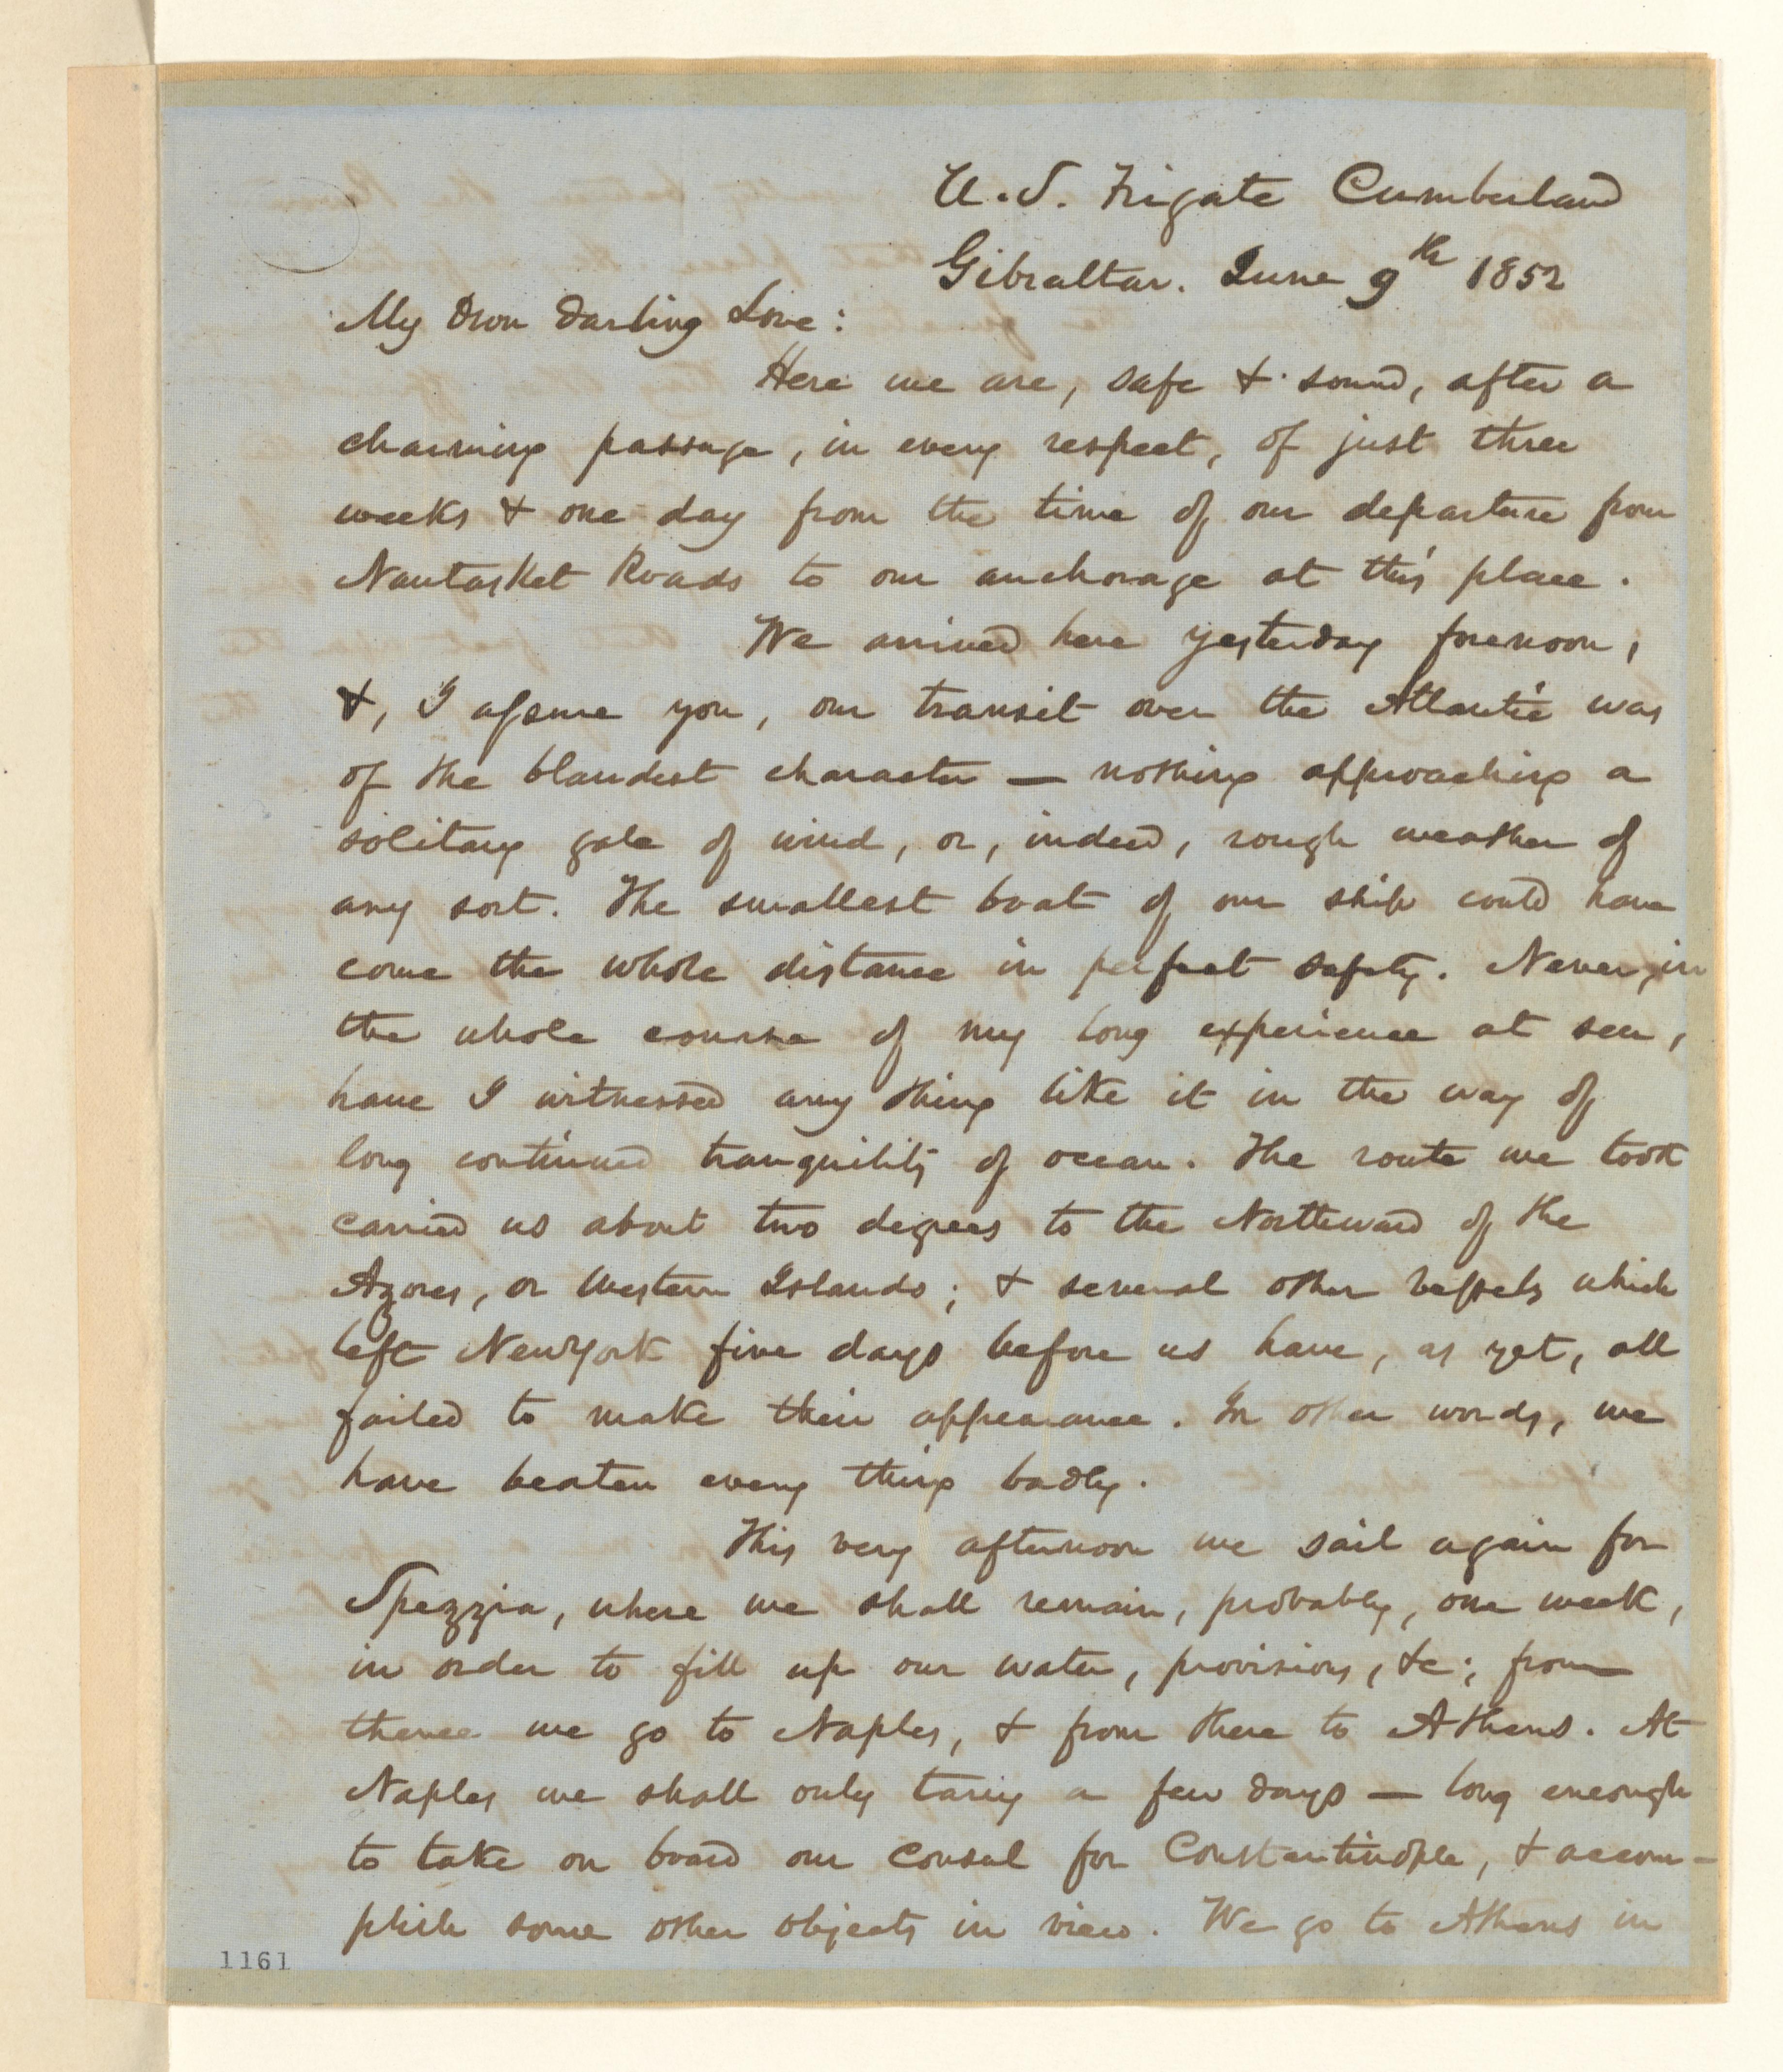 U.S. Frigate Cumberland
Gibraltar. June 9th 1852
My Own Darling Love:
Here we are, safe & sound, after a
charming passage, in every respect, of just three
weeks & one day from the time of our departure from
Nantasket Roads to our anchorage at this place.
We arrived here yesterday forenoon,
&, I assure you, our transit over the Atlantic was
of the blandest character — nothing approaching a
solitary gale of wind, or, indeed, rough weather of
any sort. The smallest boat of our ship could have
come the whole distance in perfect safety. Never, in
the whole course of my long experience at sea,
have I witnessed any thing like it in the way of
long continued tranquility of ocean. The route we took
carried us about two degrees to the Northward of the
Azores, or Western Islands; & several other vessels which
left New York five days before us have, as yet, all
failed to make their appearance. In other words, we
have beaten every thing badly.
This very afternoon we sail again for
Spezzia, where we shall remain, probably, one week,
in order to fill up our water, provisions, &c; from
thence we go to Naples, & from there to Athens. At
Naples we shall only tarry a few days — long eneough
to take on board our Consul for Constantinople, & accom-
plish some other objects in view. We go to Athens in
1161